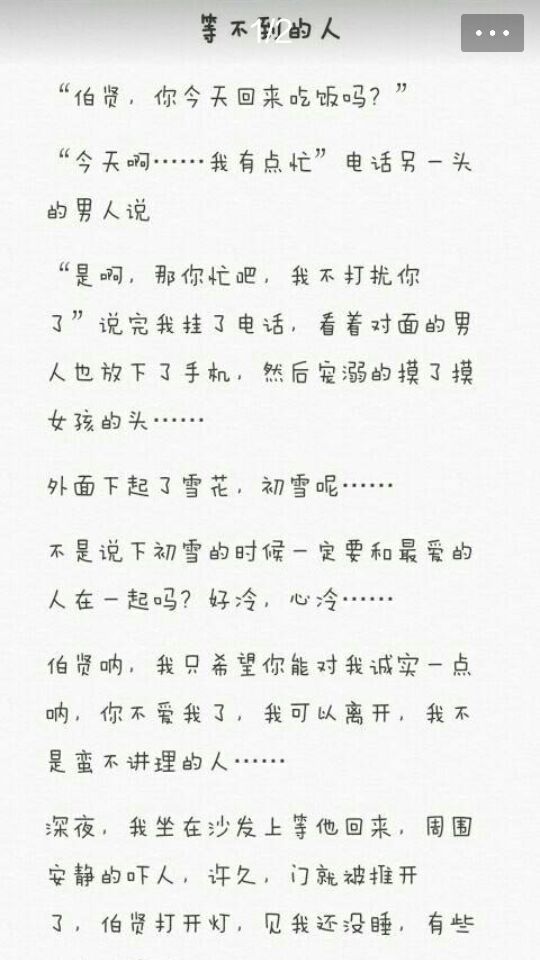 等不到的人
1/2
“伯贤，你今天回来吃饭吗？”
“今天啊……我有点忙”电话另一头
的男人说
“是啊，那你忙吧，我不打扰你
了”说完我挂了电话，看着对面的男
人也放下了手机，然后宠溺的摸了摸
女孩的头……
外面下起了雪花，初雪呢……
不是说下初雪的时候一定要和最爱的
人在一起吗？好冷，心冷……
伯贤呐，我只希望你能对我诚实一点
呐，你不爱我了，我可以离开，我不
是蛮不讲理的人……
深夜，我坐在沙发上等他回来，周围
安静的吓人，许久，门就被推开
了，伯贤打开灯，见我还没睡，有些